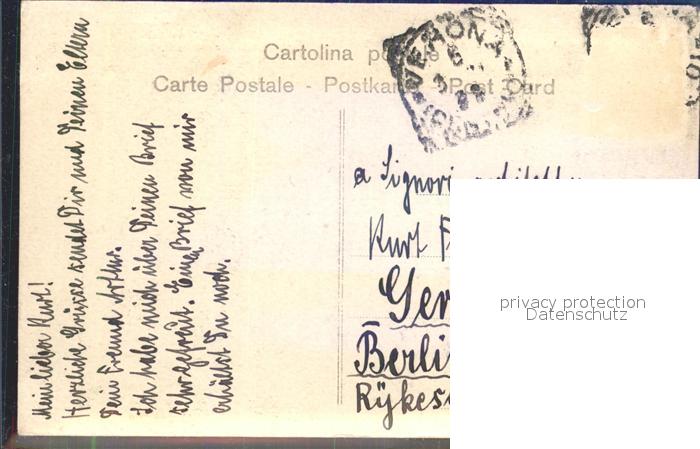 Cartolina postale
Carte Postale - Postkarte - Post Card
VERONA
Mein lieber Kurt!
Herzliche Grüsse sendet Dir und Deinen Eltern
Dein Freund Artur.
Ich habe mich über Deinen Brief
sehr gefreut. Einen Brief von mir
erhältst Du noch.
a Signori
Kurt F
Ger
Berli
Rykes
privacy protection
Datenschutz